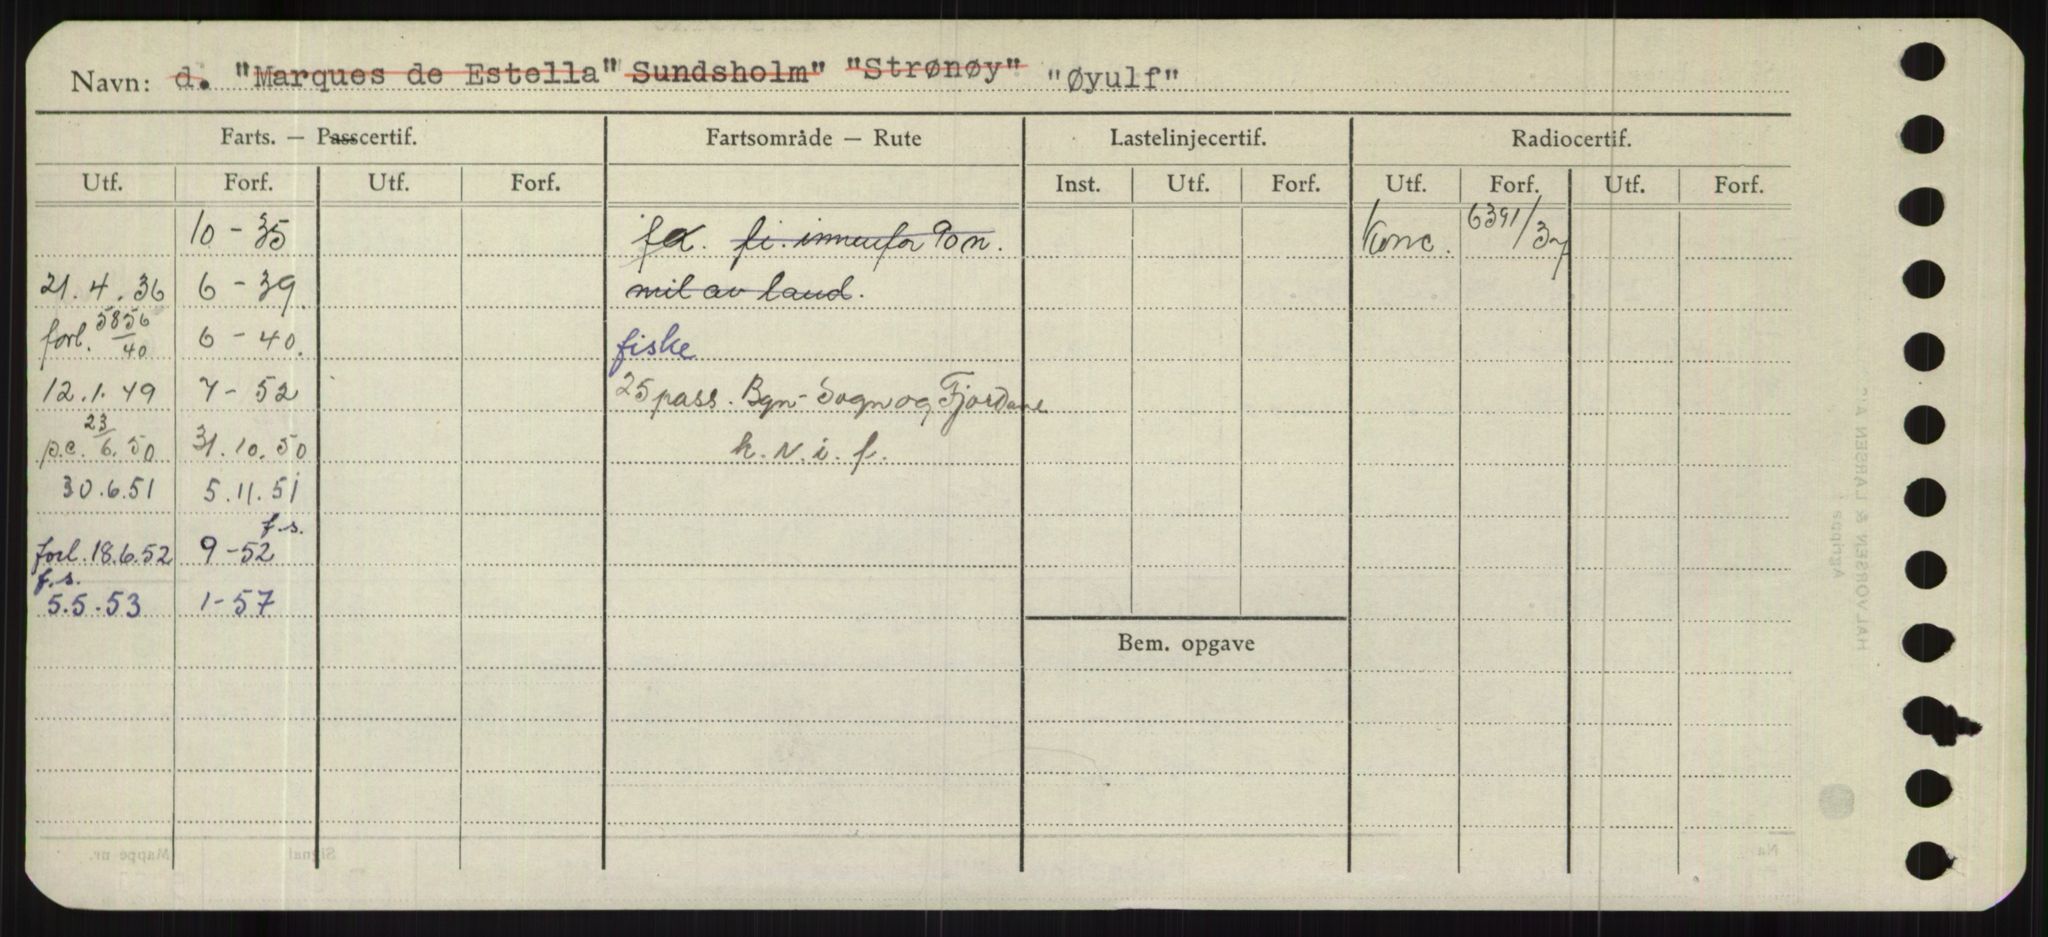 Navn: d. "Marques de Estella" Sundsholm" "Strønøy" "Øyulf"
Farts. — Passcertif. Fartsområde — Rute Lastelinjecertif. Radiocertif.
Utf. Forf. Utf. Forf. Inst. Utf. Forf. Utf. Forf. Utf. Forf.
10 - 35 fa. fi. innenfor 90 n. Konc. 6391/37
21.4.36 6 - 39 mil av land.
forl. 5856/40 6 - 40. fiske
12.1.49 7 - 52 25 pass. Bgn - Sogn og Fjordane
p.c. 23/6.50 31.10.50 k.v.i.f.
30.6.51 5.11.51
forl. 18.6.52 9-52 f.s.
f.s.
5.5.53 1-57
Bem. opgave
Mappe nr. Signal Na
HALVORSEN & LARSEN A/S
Agrippa